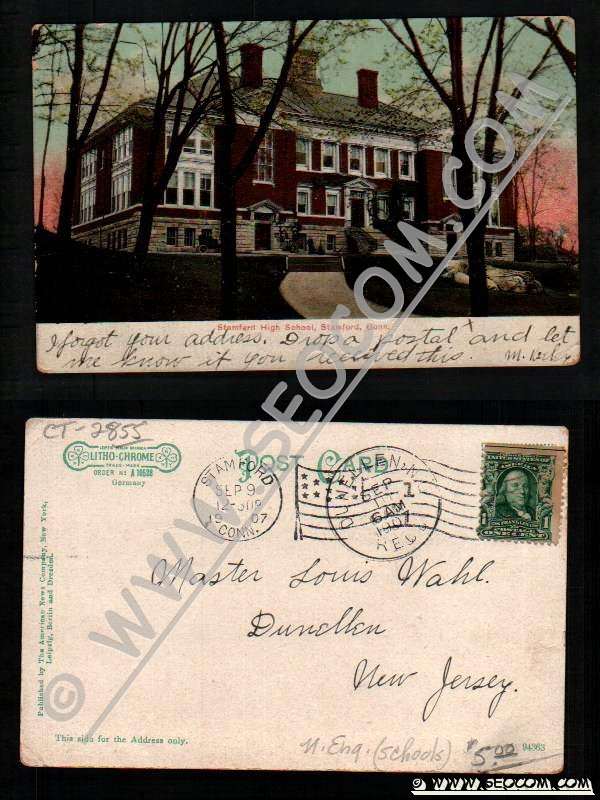 Stamford High School, Stamford, Conn.
I forgot your address. Drop a postal and let
me know if you received this.
CT-2855
LITHO-CHROME
TRADE-MARK
ORDER No A 10638
Germany
POST CARD
STAMFORD
SEP 9
1907
CONN.
DUNELLEN, N.J.
SEP
6 AM
1907
REC'D
1
POSTAGE
ONE CENT
1
Master Louis Wahl.
Dunellen
New Jersey.
Published by The American News Company, New York,
Leipzig, Berlin and Dresden.
This side for the Address only.
N. Eng. (schools)
$5.00
94363
© WWW.SEOCOM.COM
© WWW.SEOCOM.COM